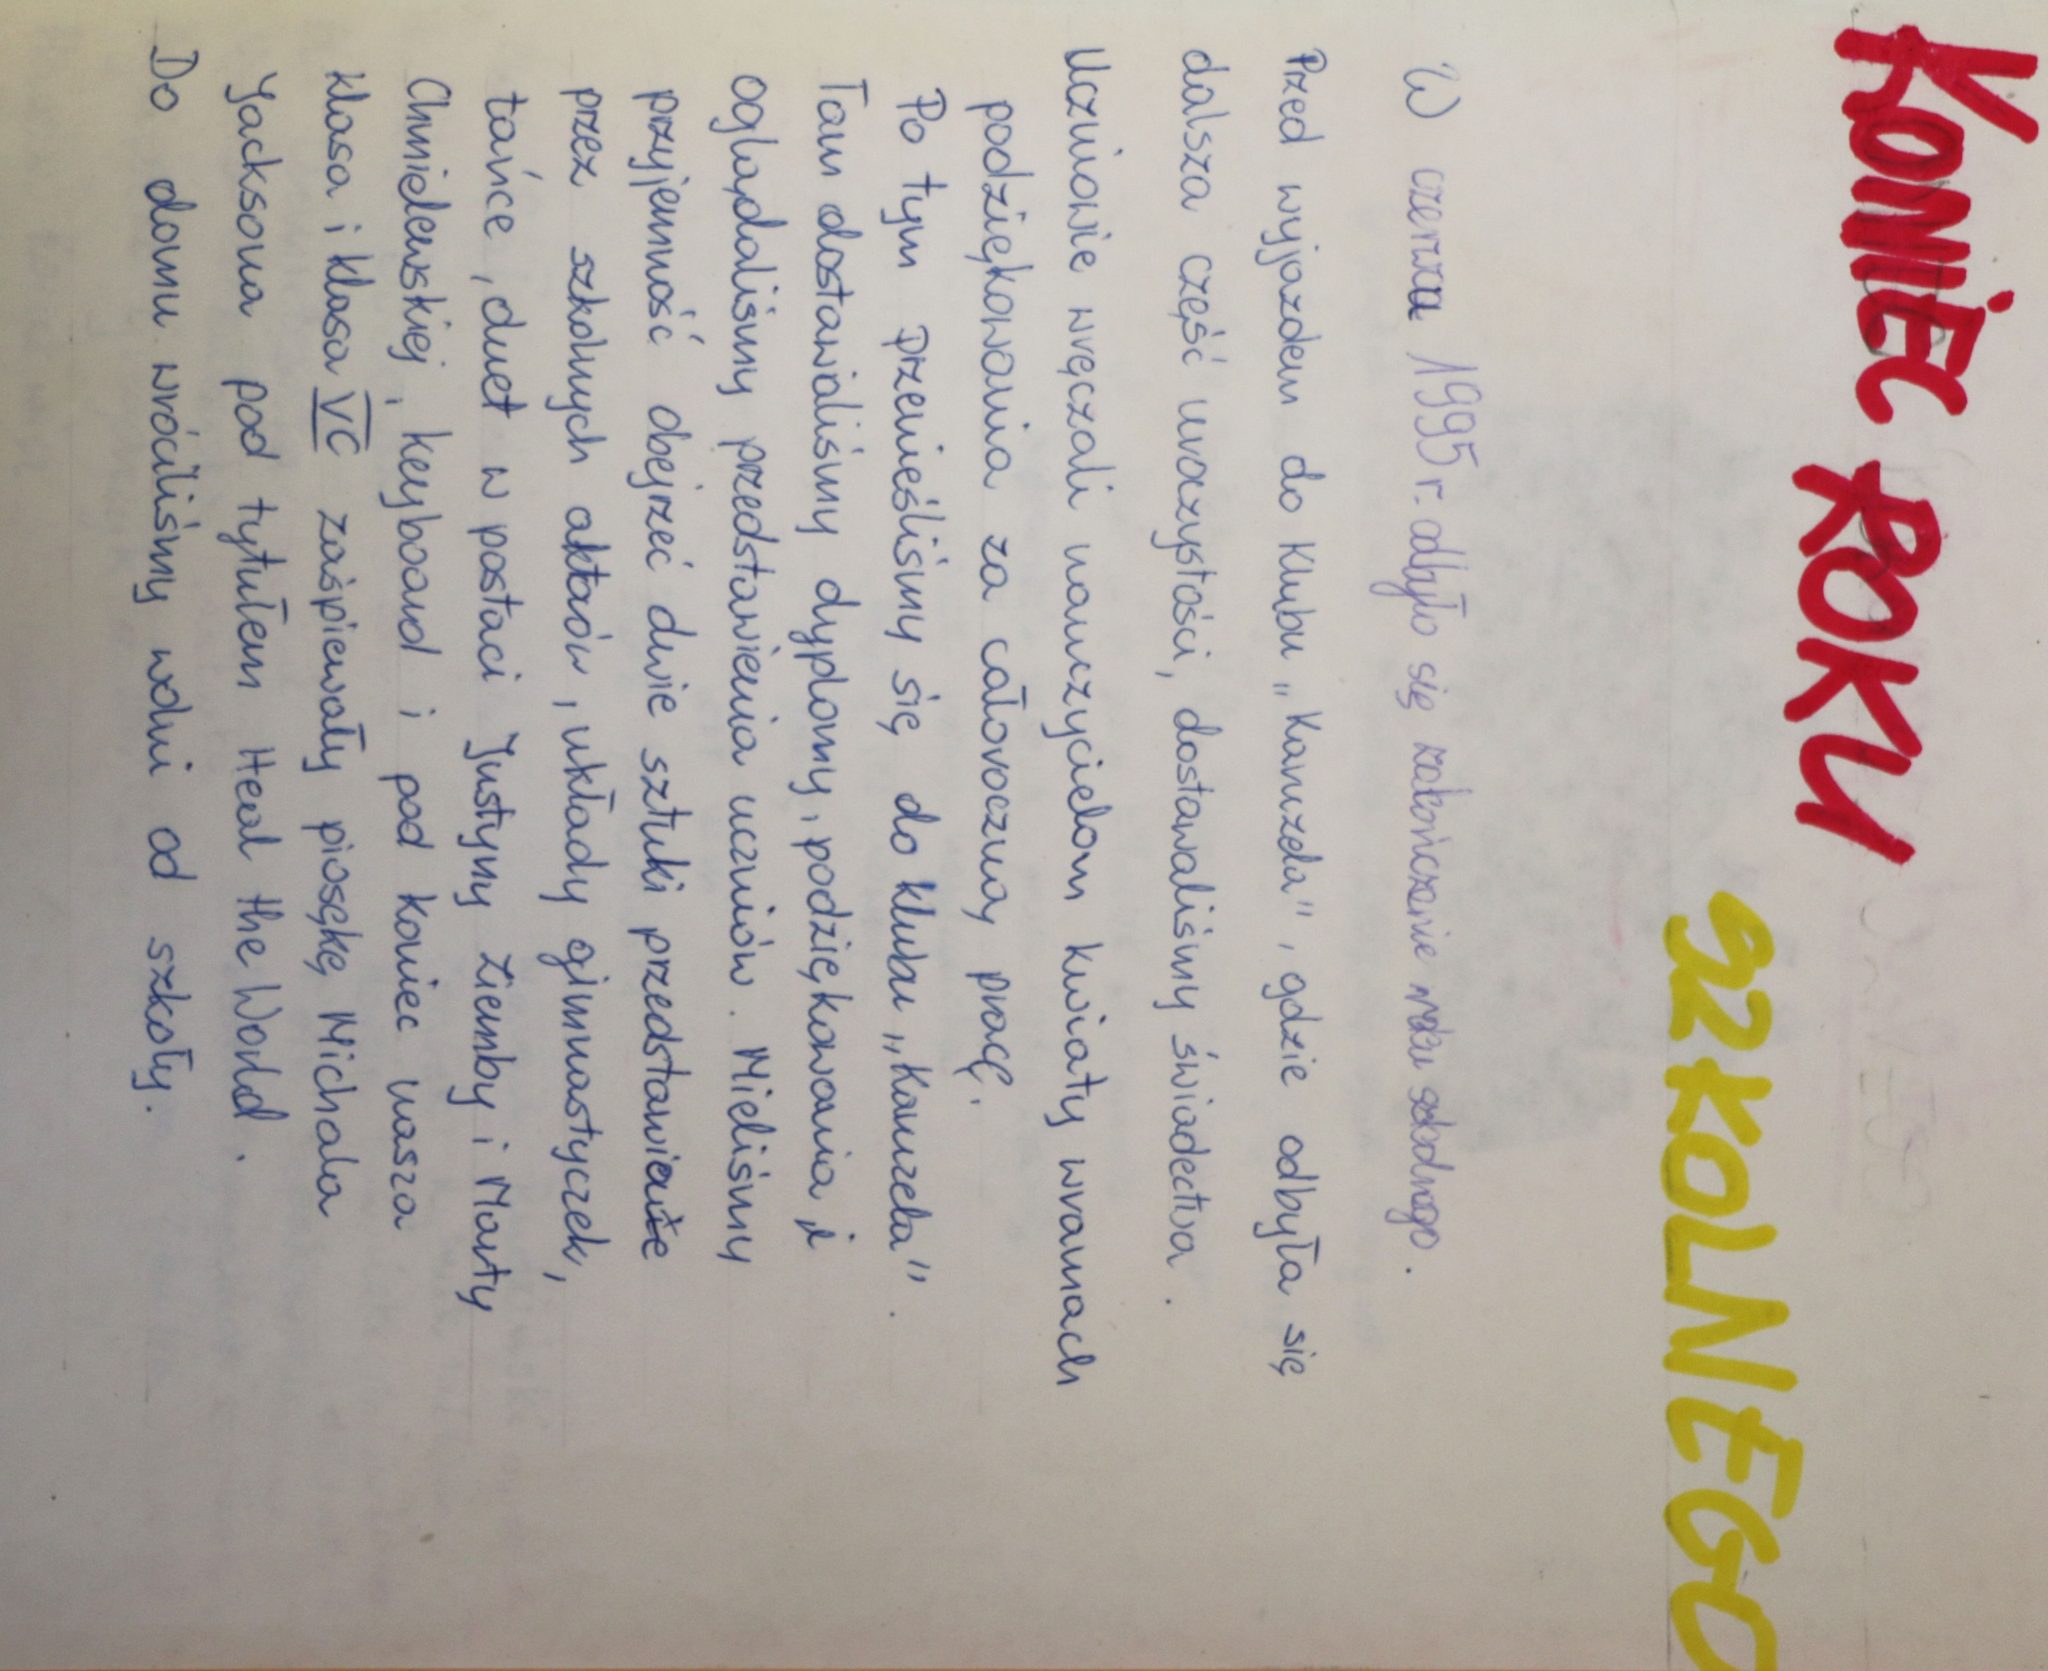 KONIEC ROKU
SZKOLNEGO
W czerwcu 1995 r. odbyło się zakończenie roku szkolnego.
Przed wyjazdem do Klubu „Kanzela", gdzie odbyła się
dalsza część uroczystości, dostawaliśmy świadectwa.
Uczniowie wręczali nauczycielom kwiaty w ramach
podziękowania za całoroczną pracę.
Po tym przenieśliśmy się do klubu „Kanzela".
Tam dostawaliśmy dyplomy, podziękowania i
oglądaliśmy przedstawienia uczniów. Mieliśmy
przyjemność obejrzeć dwie sztuki przedstawione
przez szkolnych aktorów, układy gimnastyczek,
tańce, duet w postaci Justyny Ziemby i Marty
Chmielewskiej, keyboard i pod koniec nasza
klasa i klasa VC zaśpiewały piosękę Michala
Jacksona pod tytułem Heal the World.
Do domu wróciliśmy wolni od szkoły.